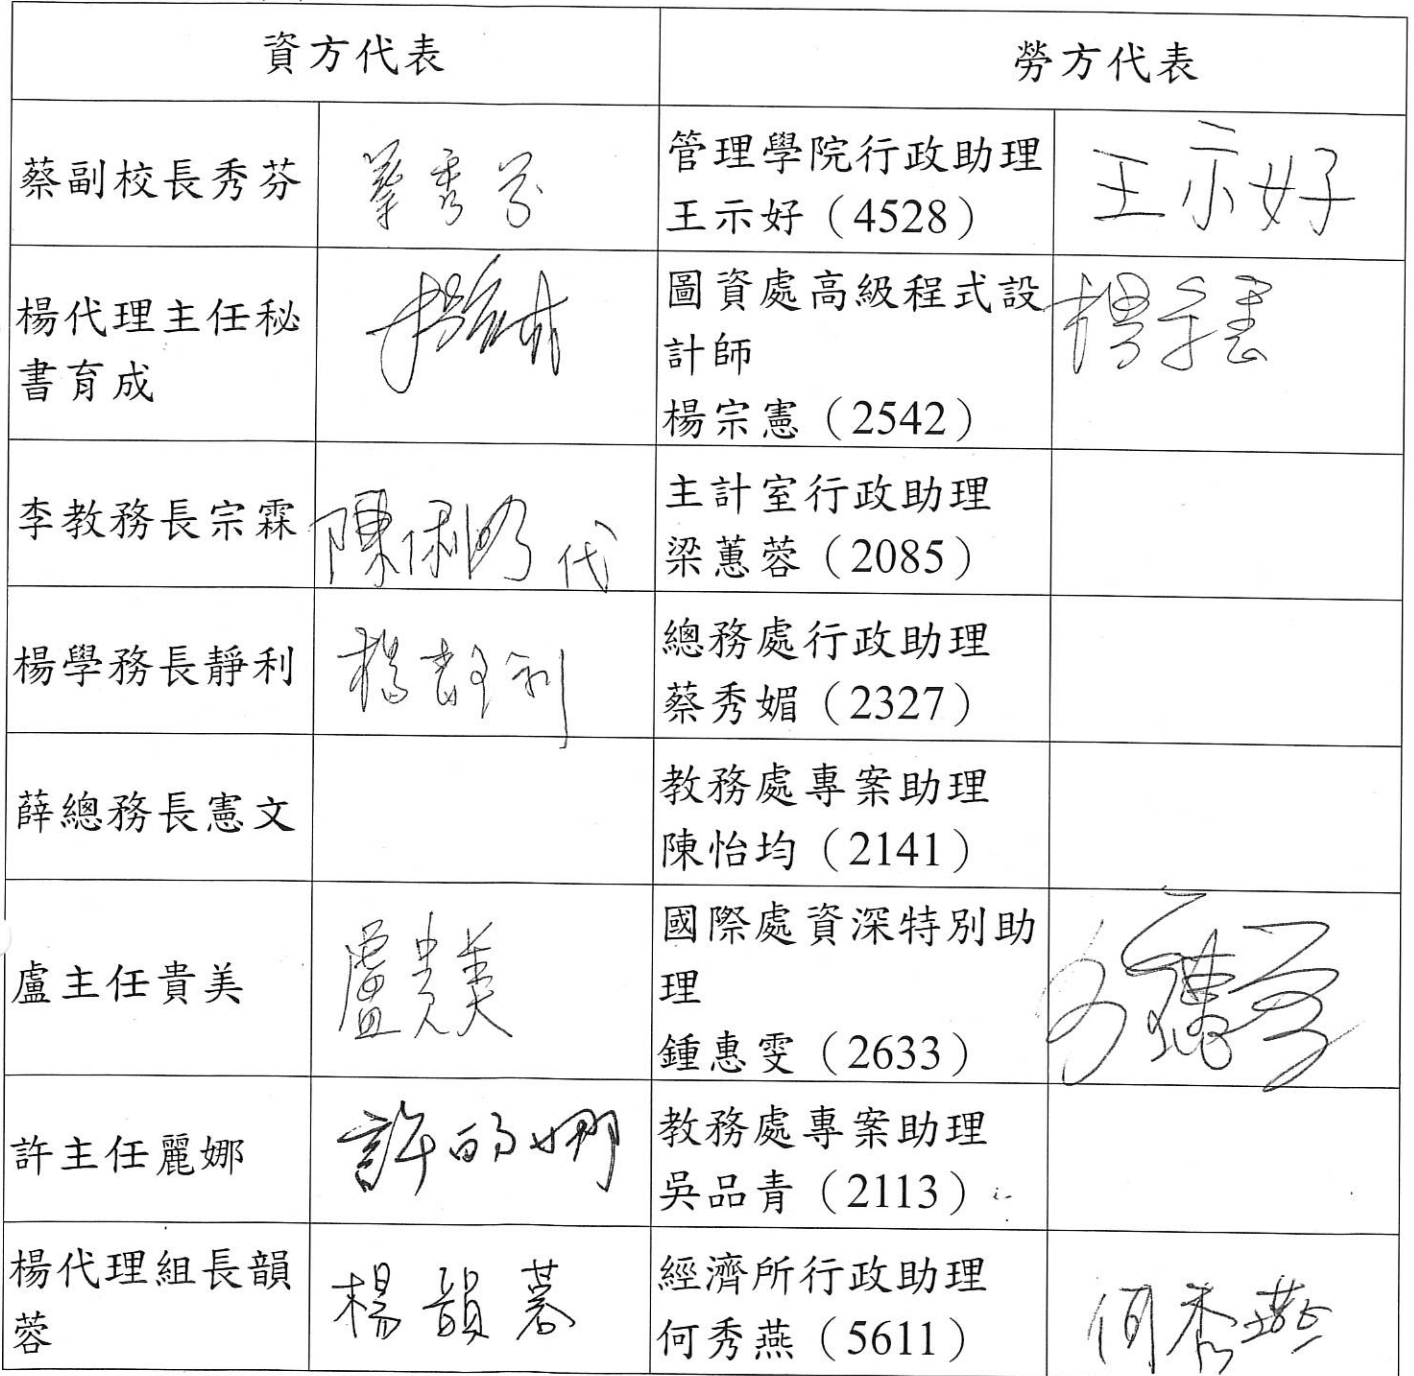 資方代表
勞方代表
蔡副校長秀芬
蔡秀芬
管理學院行政助理
王示好（4528）
王示好
楊代理主任秘
書育成
圖資處高級程式設
計師
楊宗憲（2542）
楊宗憲
李教務長宗霖
陳 代
主計室行政助理
梁蕙蓉（2085）
楊學務長靜利
楊靜利
總務處行政助理
蔡秀媚（2327）
薛總務長憲文
教務處專案助理
陳怡均（2141）
盧主任貴美
盧貴美
國際處資深特別助
理
鍾惠雯（2633）
許主任麗娜
許麗娜
教務處專案助理
吳品青（2113）
楊代理組長韻
蓉
楊韻蓉
經濟所行政助理
何秀燕（5611）
何秀燕